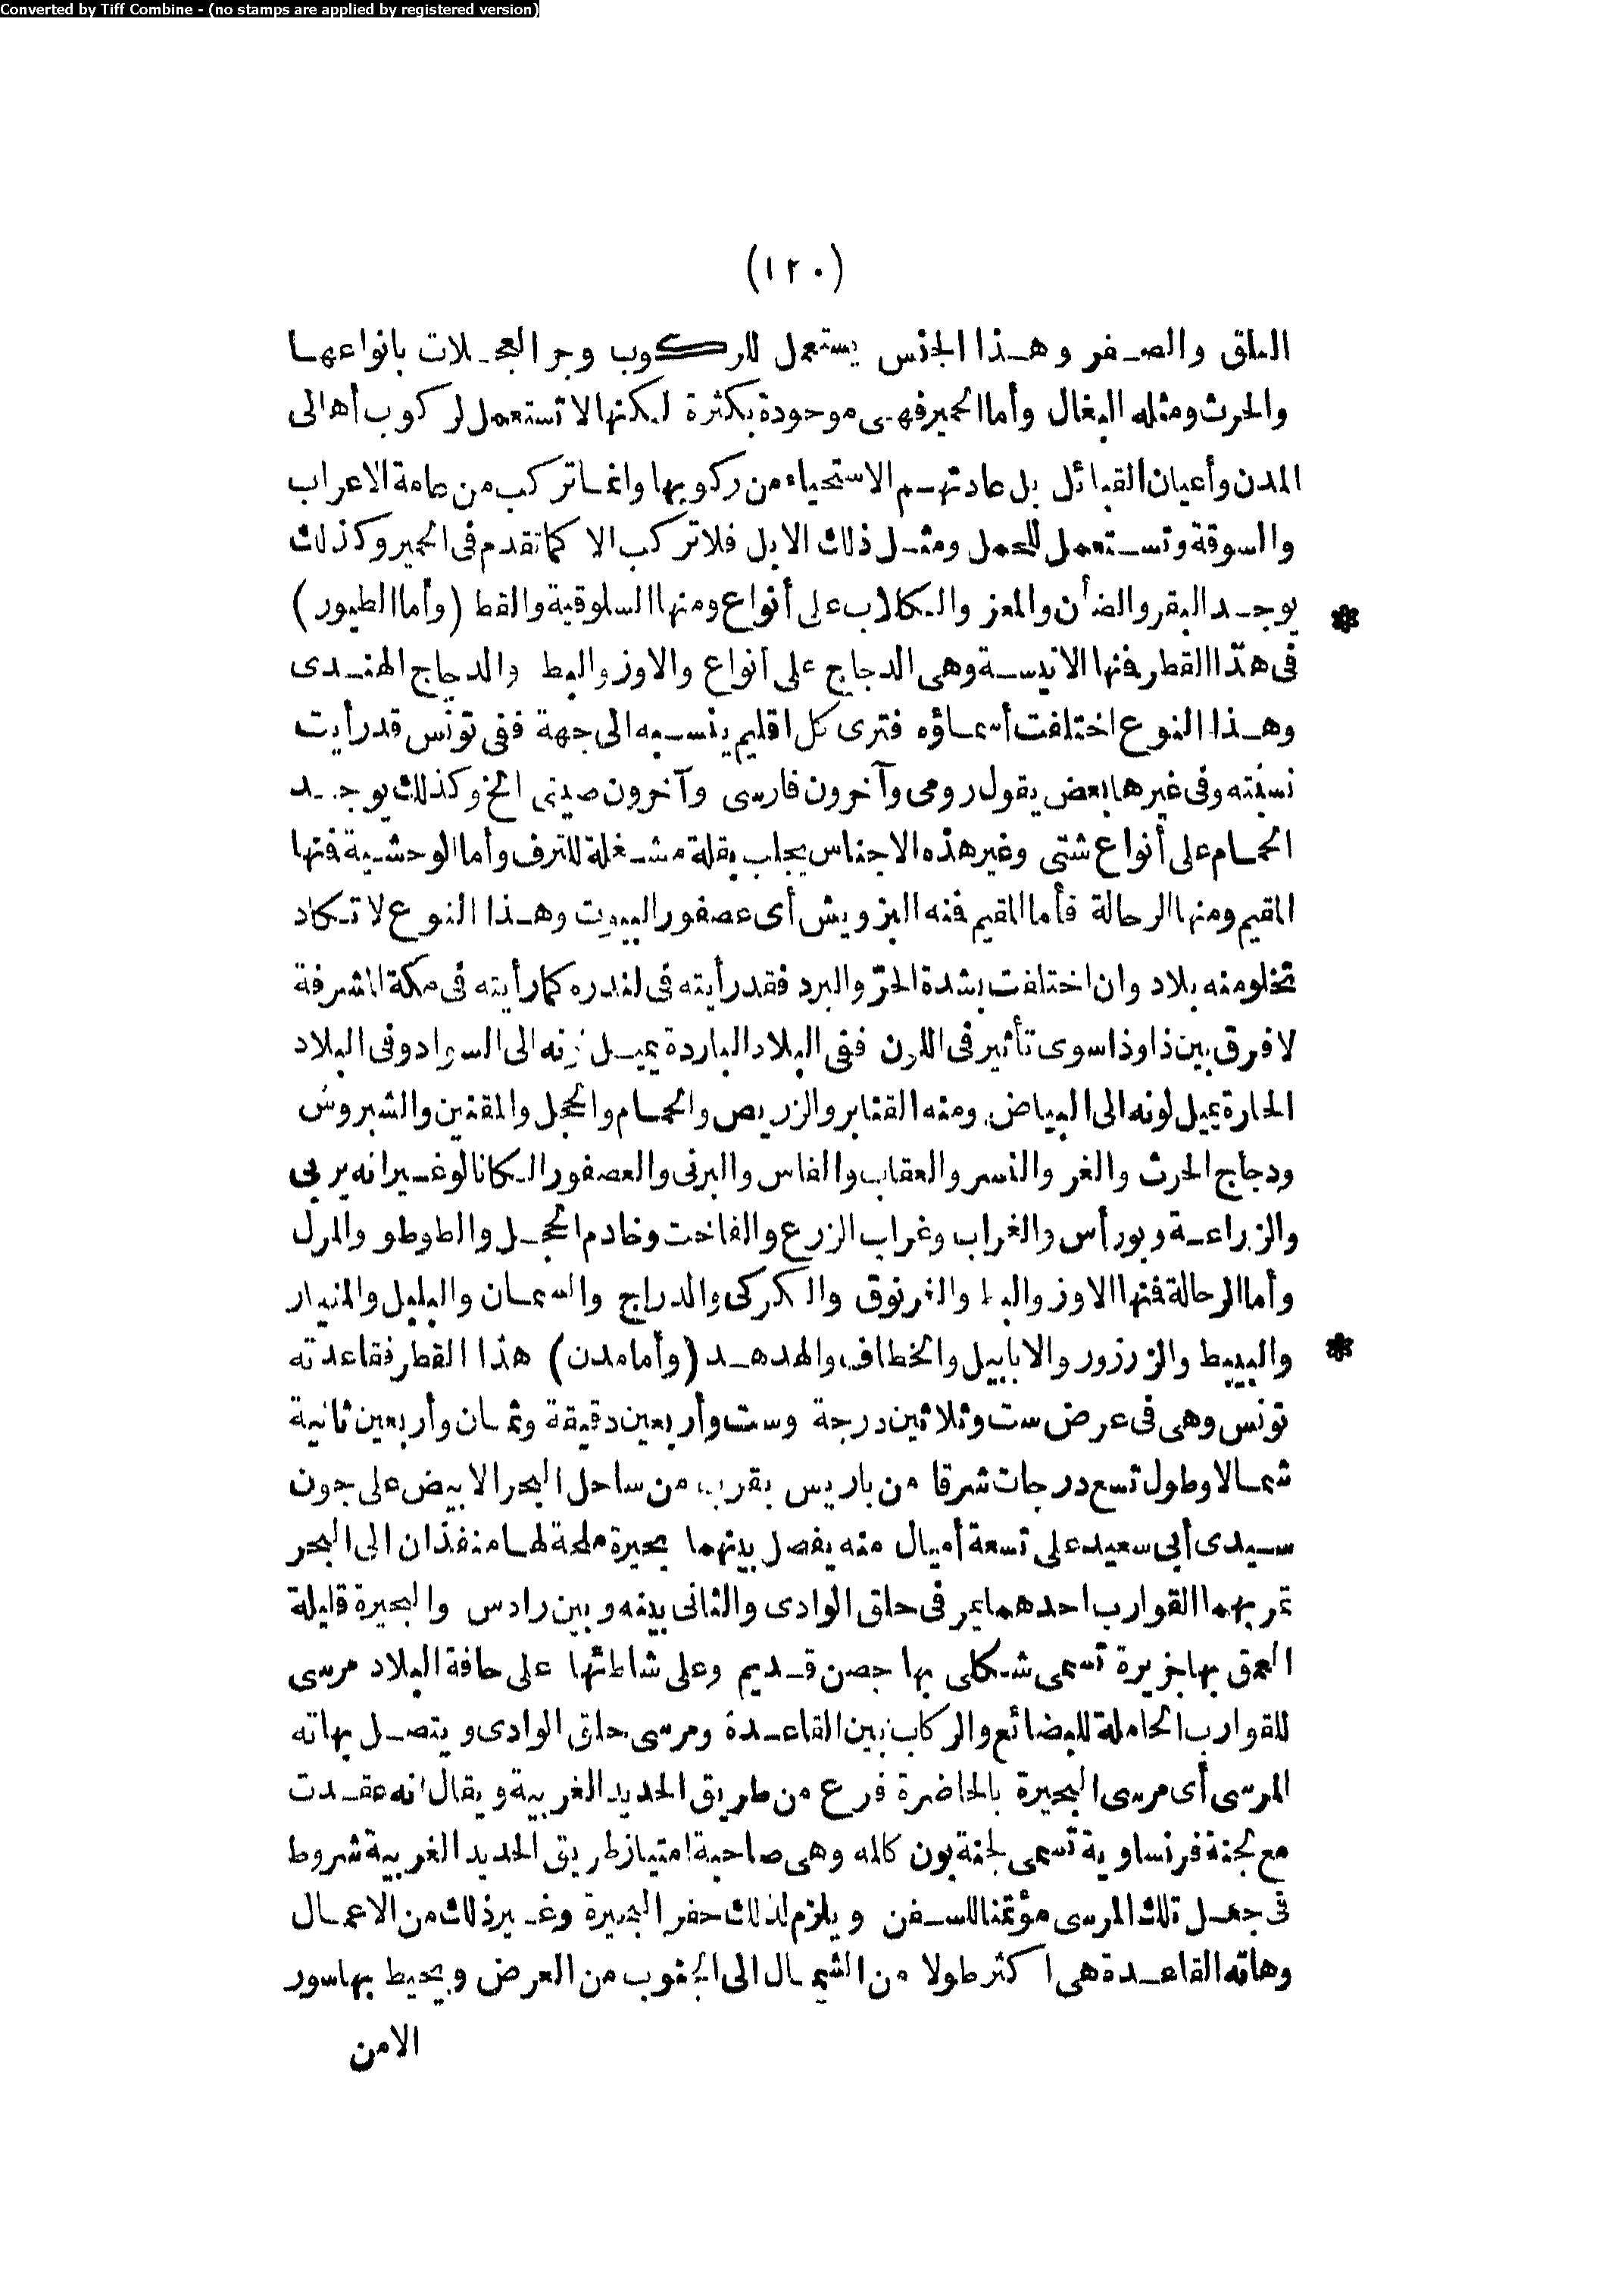 Converted by Tiff Combine - (no stamps are applied by registered version)
(١٢٠)
البلق والصفر وهذا الجنس يستعمل للركوب وجر العجلات بانواعها
والحرث ومثله البغال وأما الحمير فهى موجودة بكثرة لكنها لا تستعمل لركوب أهالى
المدن وأعيان القبائل بل عادتهم الاستحياء من ركوبها وانما تركب من عامة الاعراب
والسوقة وتستعمل للحمل ومثل ذلك الابل فلا تركب الا كما تقدم فى الحمير وكذلك
يوجد البقر والضأن والمعز والكلاب على أنواع ومنها السلوقية والقط (وأما الطيور) *
فى هذا القطر فنها الانيسة وهى الدجاج على أنواع والاوز والبط والدجاج الهندى
وهذا النوع اختلفت أسماؤه فترى كل اقليم ينسبه الى جهة ففى تونس قد رأيت
نسبته وفى غيرها بعض يقول رومى وآخرون فارسى وآخرون صينى الخ وكذلك يوجد
الحمام على أنواع شتى وغير هذه الاجناس يجلب بقلة مشغلة للترف وأما الوحشية فنها
المقيم ومنها الرحالة فأما المقيم فنه البزويش أى عصفور البيوت وهذا النوع لا تكاد
تخلو منه بلاد وان اختلفت بشدة الحرّ والبرد فقد رأيته فى لندره كما رأيته فى مكة المشرفة
لا فرق بين ذا وذا سوى تأثير فى اللون ففى البلاد الباردة يميل لونه الى السواد وفى البلاد
الحارة يميل لونه الى البياض ومنه القنابر والزريص والحمام والحجل والمقنين والشبروش
ودجاج الحرث والغر والنسر والعقاب والفاس والبرنى والعصفور الكانالو غير انه يربى
والزراعة وبورأس والغراب وغراب الزرع والفاخت وخادم الحجل والطوطو والمرل
وأما الرحالة فنها الاوز والبط والغرنوق والكركى والدراج والسمان والبلبل والمنيار
والبيبط والزرزور والابابيل والخطاف والهدهد (وأما مدن) هذا القطر فقاعدته *
تونس وهى فى عرض ست وثلاثين درجة وست وأربعين دقيقة وثمان وأربعين ثانية
شمالا وطول تسع درجات شرقا من باريس بقرب من ساحل البحر الابيض على جون
سيدى أبى سعيد على تسعة أميال منه يفصل بينهما بحيرة ملحة لها منفذان الى البحر
تمر بهما القوارب احدهما يمر فى حلق الوادى والثانى بينه وبين رادس والبحيرة قليلة
العمق بها جزيرة تسمى شكلى بها حصن قديم وعلى شاطئها على حافة البلاد مرسى
للقوارب الحاملة للبضائع والركاب بين القاعدة ومرسى حلق الوادى ويتصل بهاته
المرسى أى مرسى البحيرة بالحاضرة فرع من طريق الحديد الغربية ويقال انه عقدت
مع لجنة فرنساوية تسمى لجنة بون كالمه وهى صاحبة امتياز طريق الحديد الغربية شروط
فى جعل تلك المرسى مؤتمنا للسفن ويلزم لذلك حفر البحيرة وغير ذلك من الاعمال
وهاته القاعدة هى اكثر طولا من الشمال الى الجنوب من العرض ويحيط بها سور
الامن